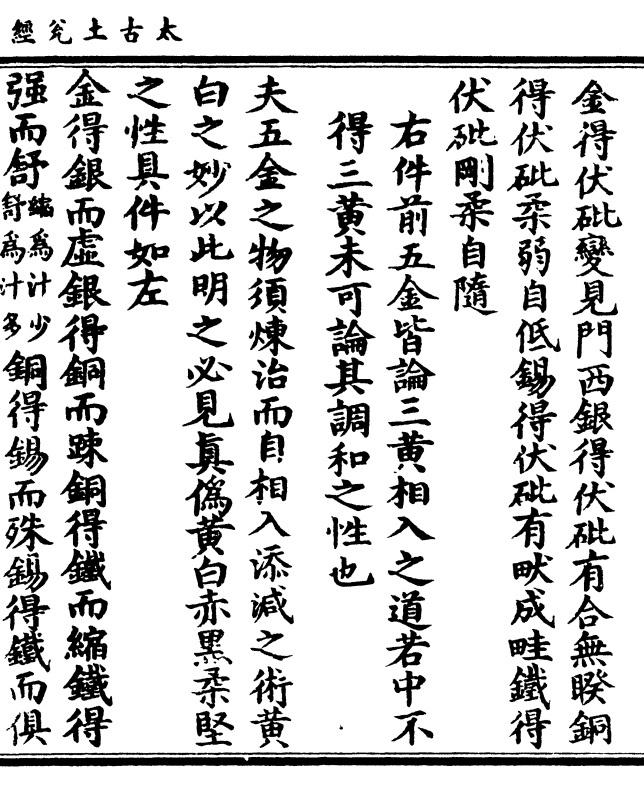 太古土兌經
金得伏砒變見門西銀得伏砒有合無暌銅
得伏砒柔弱自低錫得伏砒有畎成畦鐵得
伏砒剛柔自隨
右件前五金皆論三黃相入之道若中不
得三黃未可論其調和之性也
夫五金之物須煉治而自相入添減之術黃
白之妙以此明之必見眞僞黃白赤黑柔堅
之性具件如左
金得銀而虛銀得銅而踈銅得鐵而縮鐵得
强而舒縮爲汁少舒爲汁多銅得錫而殊錫得鐵而俱